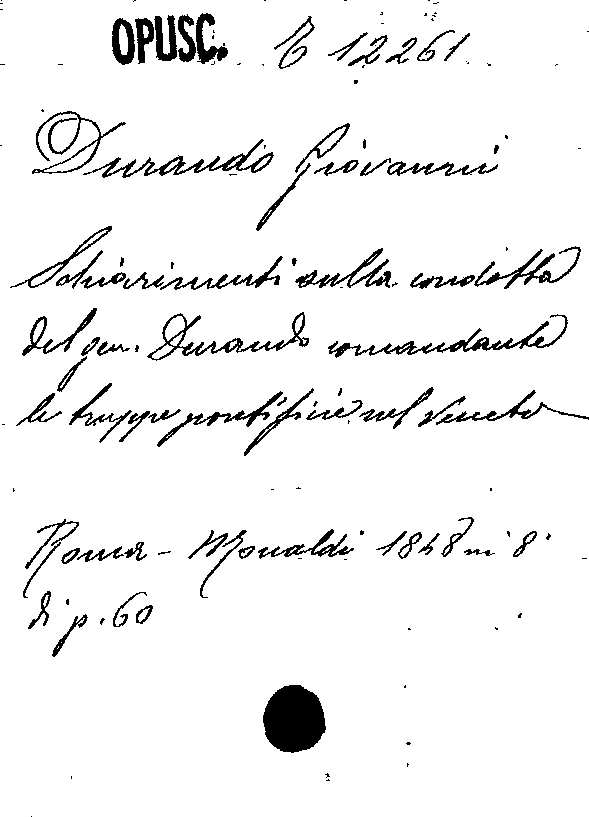 OPUSC. E 12261
Durando Giovanni
Schiarimenti sulla condotta
del gen. Durando comandante
le truppe pontificie nel Veneto
Roma - Monaldi 1848 in 8°
di p. 60